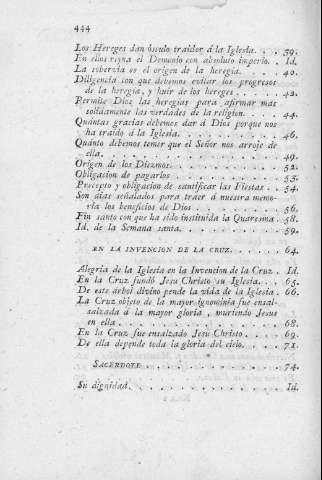 444
Los Hereges dan ósculo traidor á la Iglesia. . . . 39.
En ellos reyna el Demonio con absoluto imperio. . Id.
La sobervia es el origen de la heregía. . . . . 40.
Diligencia con que debemos evitar los progresos
de la heregía, y huir de los hereges . . . . 42.
Permite Dios las heregías para afirmar mas
solidamente las verdades de la religion. . . . 44.
Quántas gracias debemos dar á Dios porque nos
ha traido á la Iglesia. . . . . . . . . . . 46.
Quánto debemos temer que el Señor nos arroje de
ella. . . . . . . . . . . . . . . . . . 49.
Origen de los Diezmos. . . . . . . . . . . 52.
Obligacion de pagarlos . . . . . . . . . . 53.
Precepto y obligacion de santificar las Fiestas . . 54.
Son dias señalados para traer á nuestra memo-
ria los beneficios de Dios . . . . . . . . . 56.
Fin santo con que ha sido instituida la Quaresma . 58.
Id. de la Semana santa. . . . . . . . . . . 59.
EN LA INVENCION DE LA CRUZ. . . . . . . 64.
Alegria de la Iglesia en la Invencion de la Cruz . Id.
En la Cruz fundó Jesu Christo su Iglesia. . . . 65.
De este arbol divino pende la vida de la Iglesia . 66.
La Cruz objeto de la mayor ignominia fue ensal-
zalzada á la mayor gloria, muriendo Jesus
en ella . . . . . . . . . . . . . . . . 68.
En la Cruz fue ensalzado Jesu Christo. . . . . 69.
De ella depende toda la gloria del cielo. . . . . 71.
SACERDOTE . . . . . . . . . . . . . . 74.
Su dignidad. . . . . . . . . . . . . . . Id.